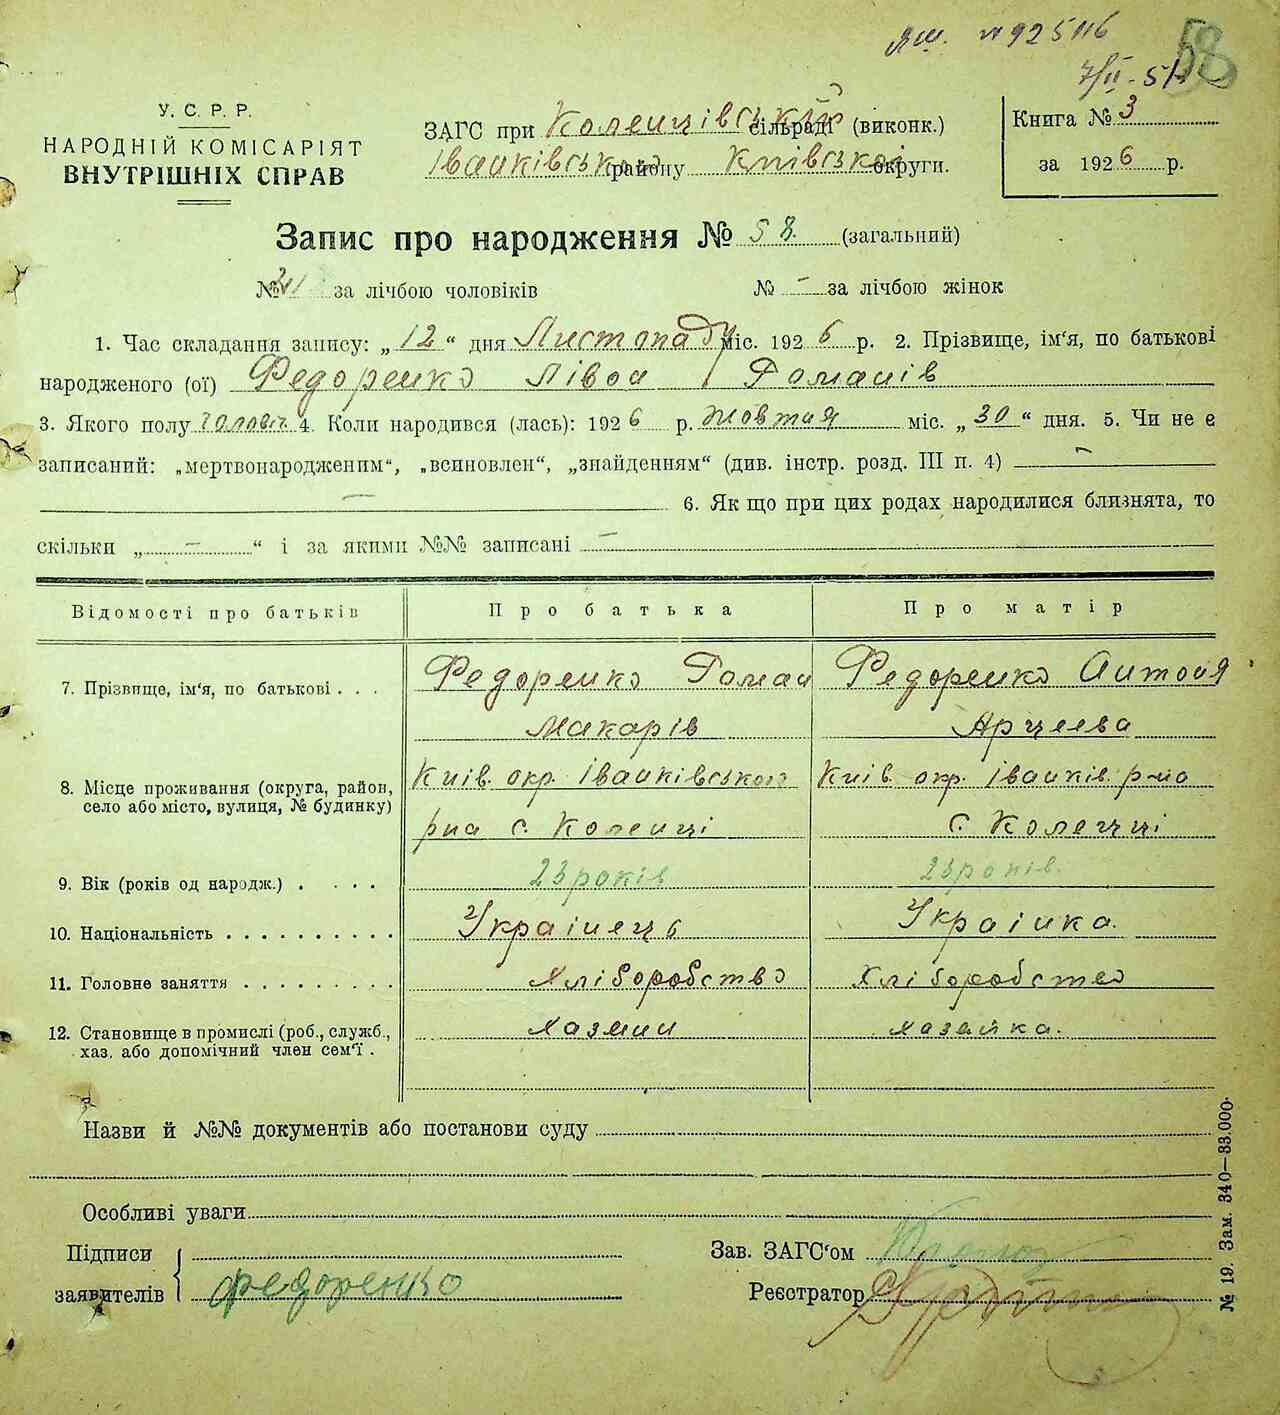 ЯШ. № 925116
58
7/II-51
У. С. Р. Р.
НАРОДНІЙ КОМІСАРІЯТ
ВНУТРІШНІХ СПРАВ
ЗАГС при Коленцівській сільраді (виконк.)
Іванківського району Київської округи.
Книга № 3
за 1926 р.
Запис про народження № 58. (загальний)
№ за лічбою чоловіків
№ – за лічбою жінок
1. Час складання запису: „12“ дня Листопаду міс. 1926 р. 2. Прізвище, ім‘я, по батькові
народженого (ої) Федоренко Лівон Романів
3. Якого полу чоловіч 4. Коли народився (лась): 1926 р. Жовтня міс. „30“ дня. 5. Чи не є
записаний: „мертвонародженим“, „всиновлен“, „знайденням“ (див. інстр. розд. III п. 4) –
– 6. Як що при цих родах народилися близнята, то
скільки „ – “ і за якими №№ записані –
Відомості про батьків
Про батька
Про матір
7. Прізвище, ім‘я, по батькові . . .
Федоренко Роман
Макарів
Федоренко Антоня
8. Місце проживання (округа, район,
село або місто, вулиця, № будинку)
Київ. окр. Іванківського
рна с. Коленці
Київ. окр. Іванків. р-но
с. Коленці
9. Вік (років од народж.) . . . . .
23 років
23 років.
10. Національність . . . . . . . . . .
Українець
Українка.
11. Головне заняття . . . . . . . . .
Хліборобство
Хліборобство
12. Становище в промислі (роб., служб.,
хаз. або допомічний член сем‘ї .
хазяин
хазяйка.
Назви й №№ документів або постанови суду
Особливі уваги
Підписи
заявителів
Федоренко
Зав. ЗАГС‘ом
Реєстратор
№ 19. Зам. 340—33.000.